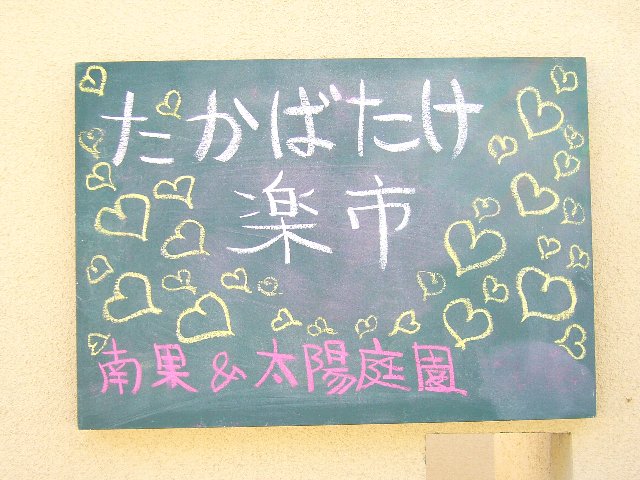 たかばたけ
楽市
南果&太陽庭園